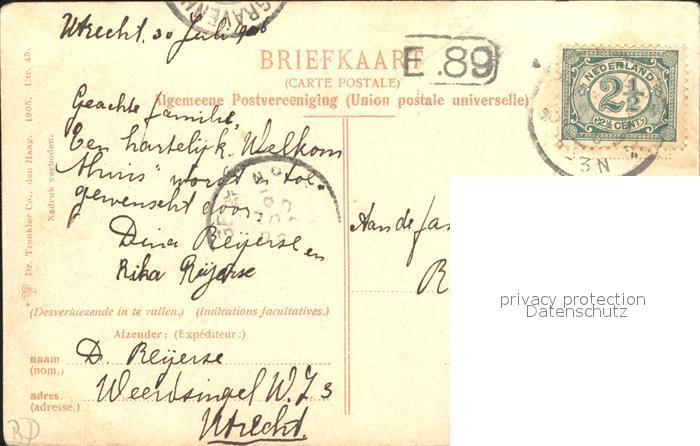 Utrecht, 30 Juli 1906
GRAVENH
BRIEFKAART
(CARTE POSTALE)
E.89
Algemeene Postvereeniging (Union postale universelle)
NEDERLAND
2½
(2½ CENT)
-3N
Geachte familie,
Een hartelijk "Welkom
thuis" wordt U toe-
gewenscht door
Dina Reijerse en
Rika Reijerse
Aan de fa
R
privacy protection
Datenschutz
(Desverkiezende in te vullen.) (Indications facultatives.)
Afzender: (Expéditeur:)
naam D. Reijerse
(nom.)
adres. Weerdsingel W.Z. 3
(adresse.)
Utrecht.
Dr. Trenkler Co., den Haag. 1905. Utr. 45.
Nadruk verboden.